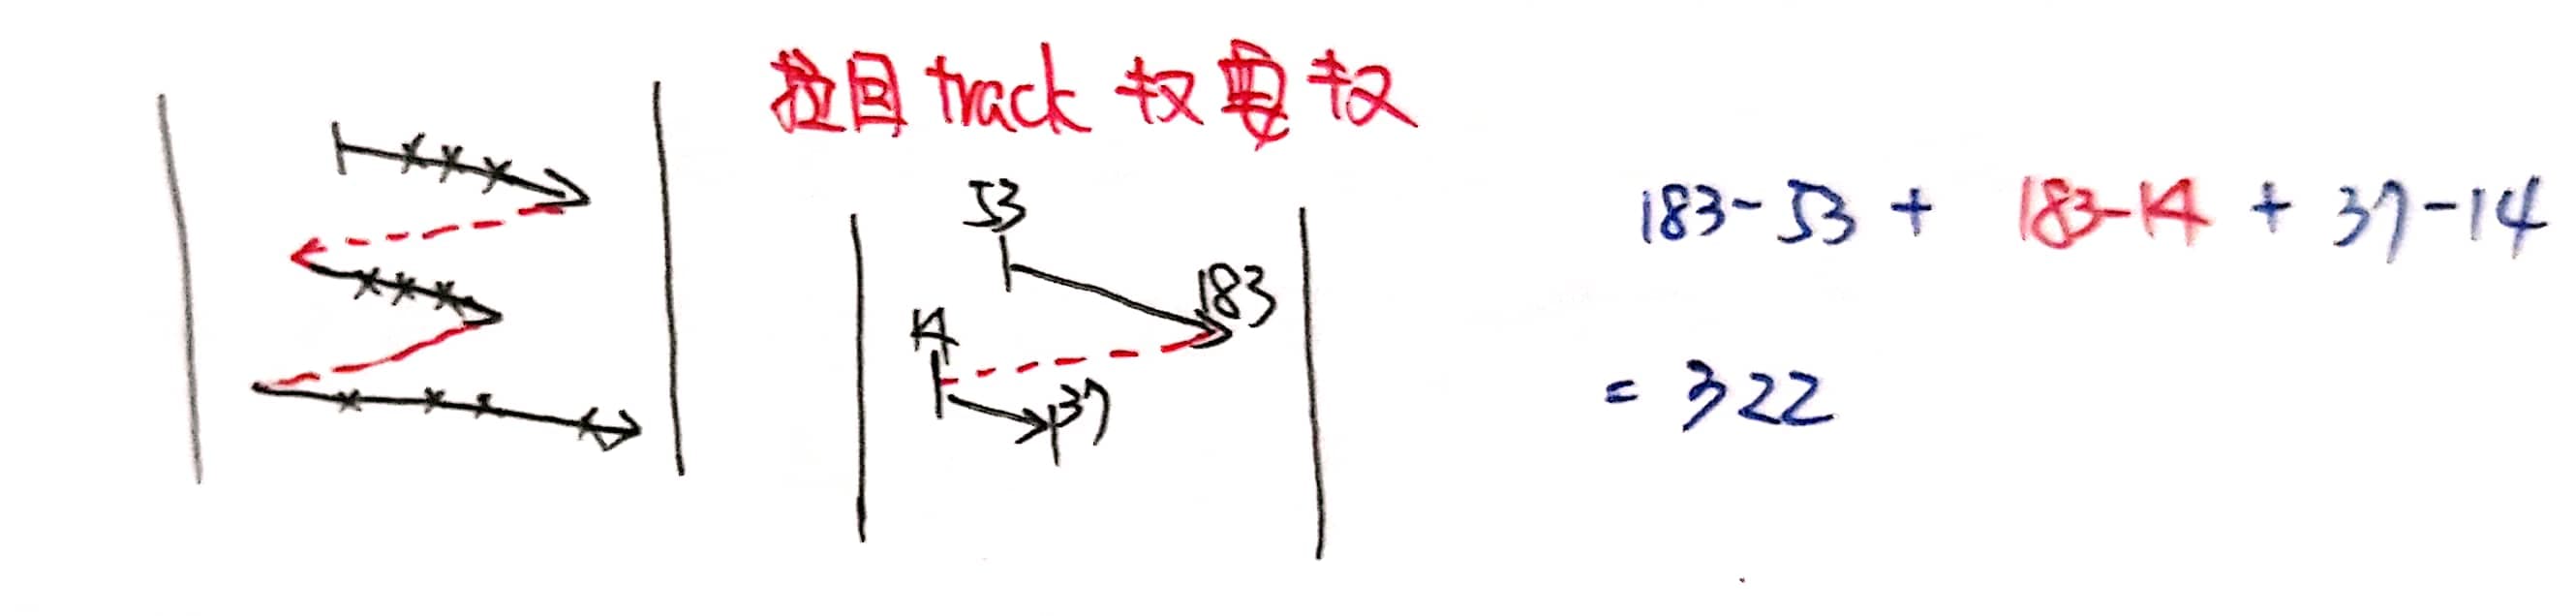 拉回 track 也要
53
183
14
37
183-53 + 183-14 + 37-14
= 322